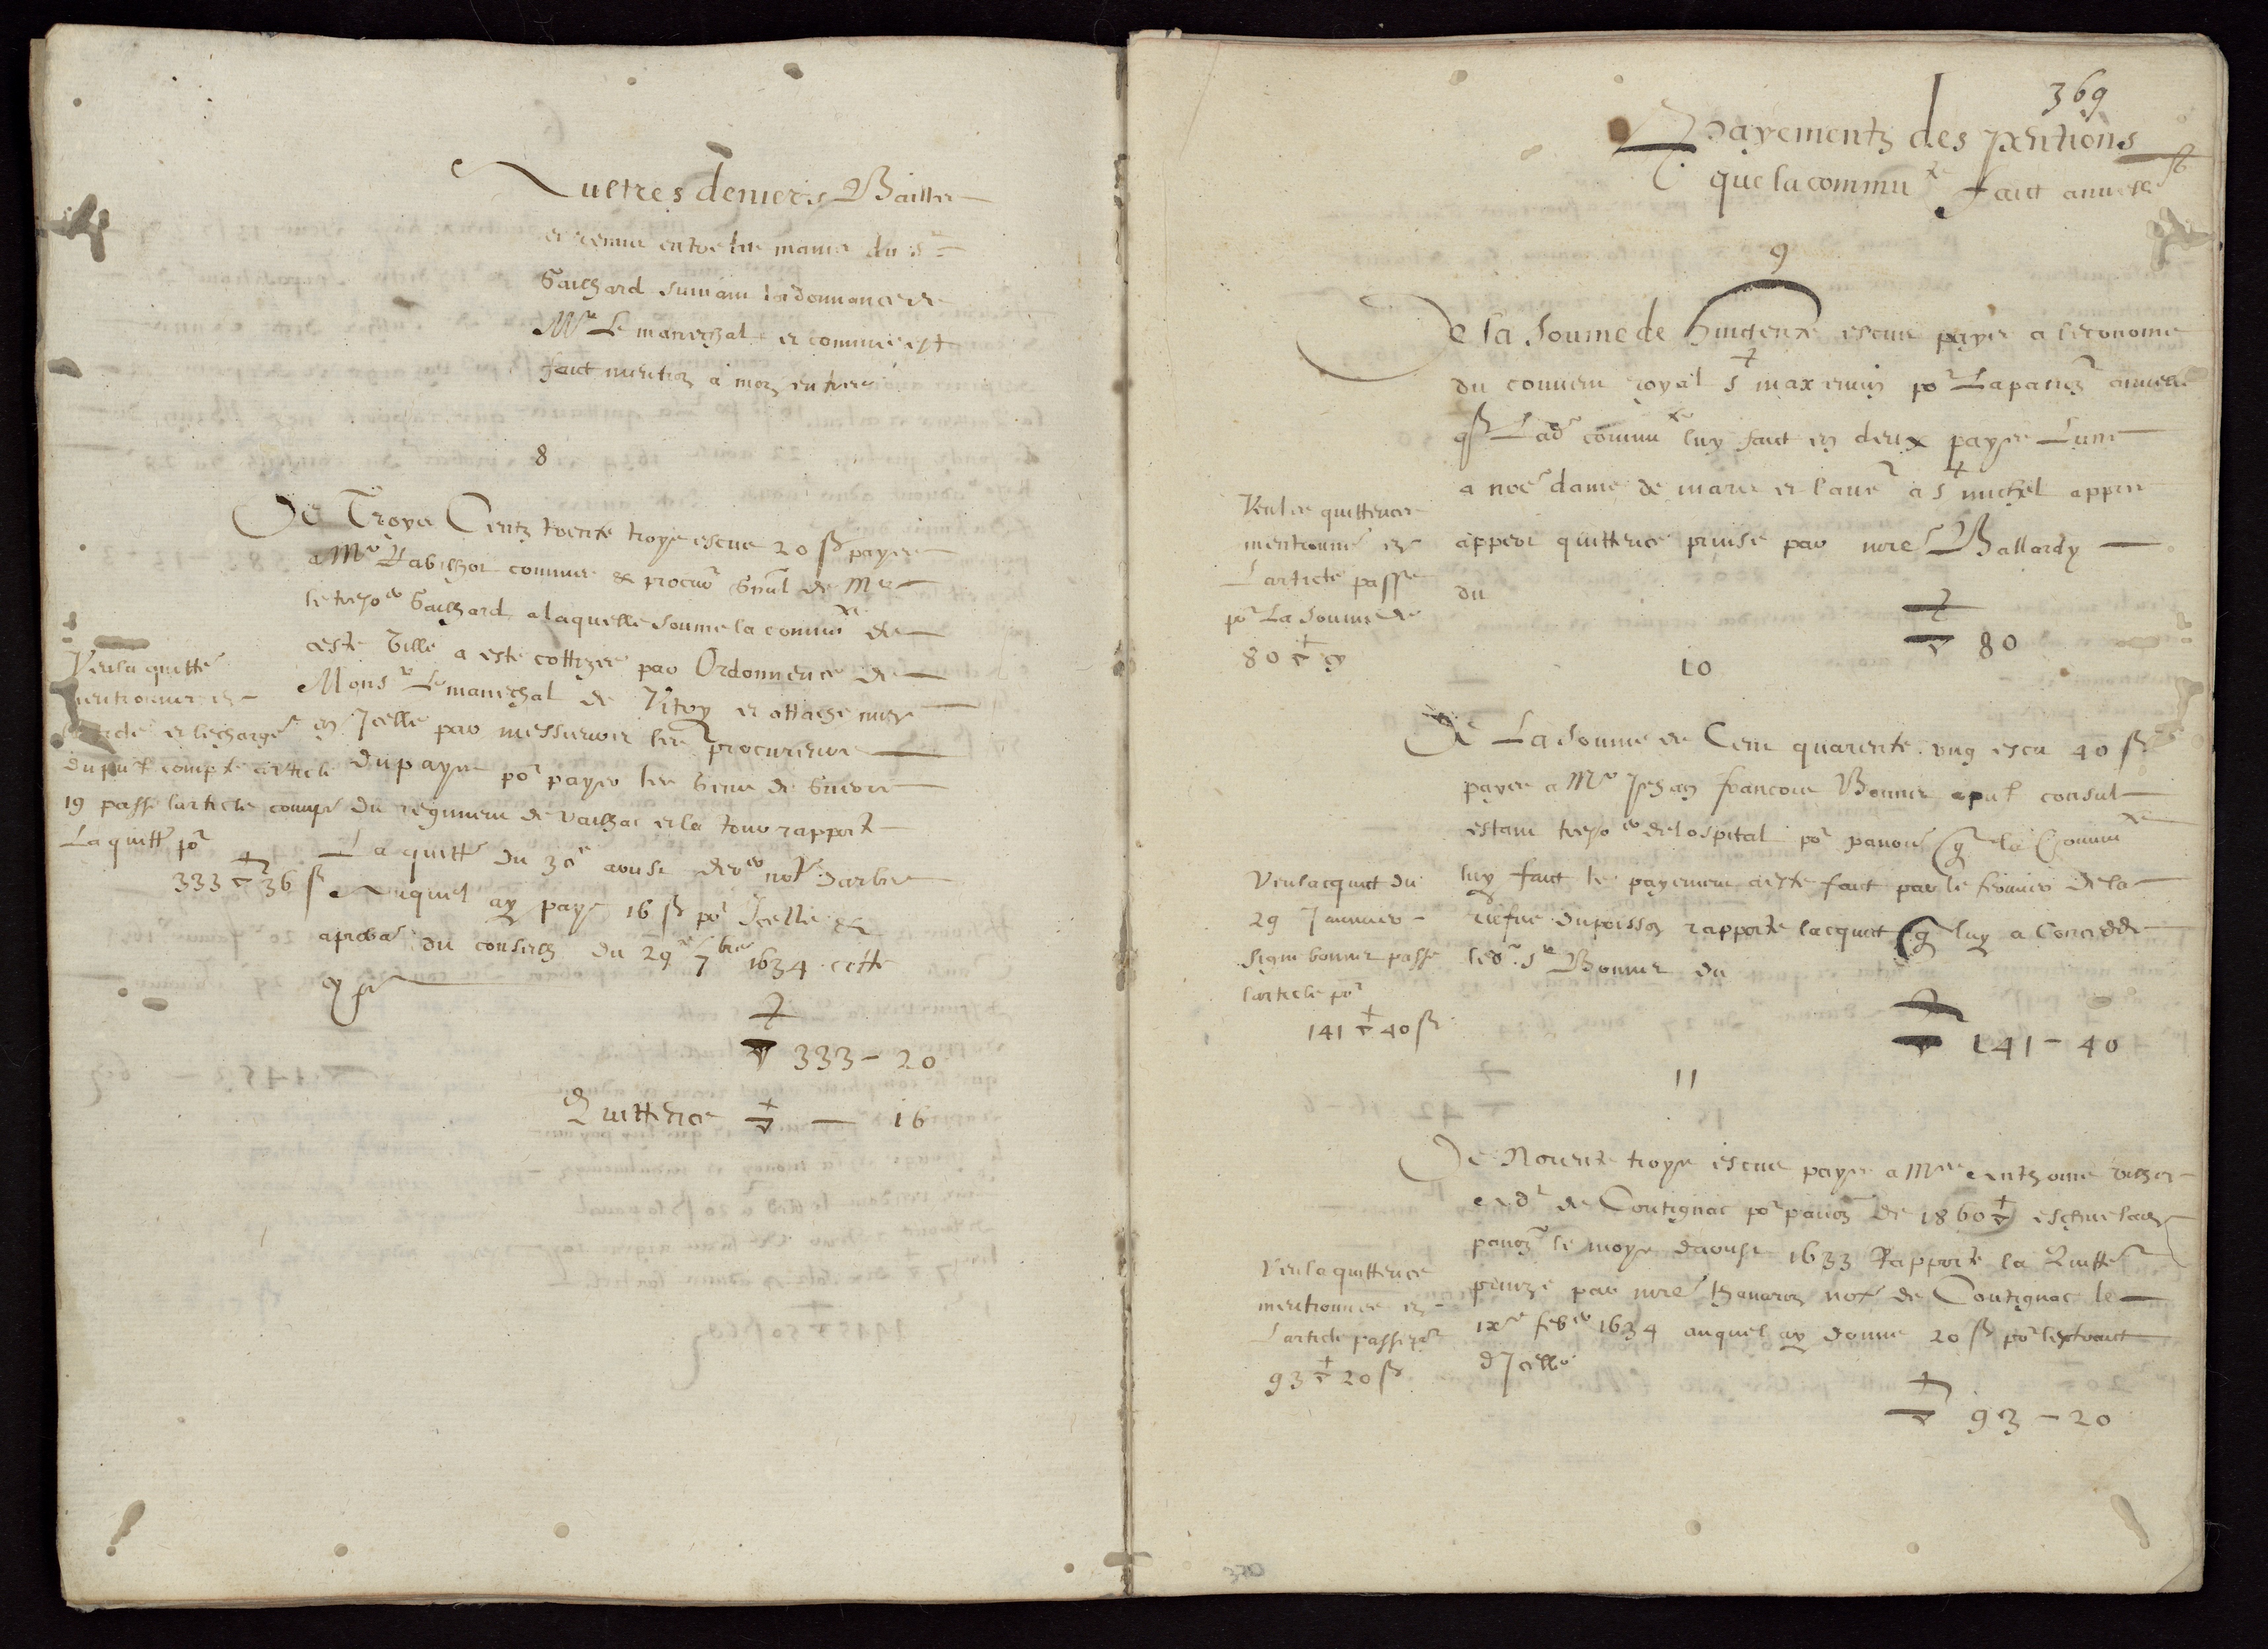 Aultres deniers Bailles
et remis entre les mains du Sr
Gailhard suivant lordonnance de
Mr Le mareschal et comme est
faict mention a mon entree
8
De Troyes Centz trente troys escus 20 ß payes
a Mre commis & procur gnāl de Mr
le treso er Gailhard a laquelle soume la commu te de
ceste Ville a este cottizee par Ordonnence de
Mons r Le mareschal de Vitry et attache mize
en Icelle par messieurs les procureurs
du pays po r payer les Gens de Guerre
du regiment de Vailhac et la tour rapporte
La quitt e du 30 e aoust not
Auquel ay paye 16 ß po r Icelle &
du conseilh du 29 e 7 bre 1634 cotte
Veu la quitt e
mentionnee en
et lecharge
du put compte article
19 passe larticle compe
La quitt po r
333 36 ß
333 - 20
Quittence — 16
369
Payementz des pentions
que la commu te faict annuelles
9
De la soume de huictente escus payes a leconome
du couvent royal S t maxemin po r La pantion annuelle
q Lad e commu te luy faict en deux payes Lune
a nore dame de mars et laue a S t michel appres
appert quittence prinse par mre Ballardy
du
80
Veu les quittences
mentionné en
Larticle passe
po r La soume de
80 cy
10
De La soume de Cent quarente ung escu 40 ß
payes a Mre Jehan francois Bonnet aput consul
estant treso er de lospital po r pantion q la Commu te
luy faict le payement a este faict par le fermier de la
refue du poisson rapporte lacquict q luy a Concedde
led. s r Bonnet du
141 - 40
Veu lacquict du
29 Jannvier
signe bonnet passe
larticle po r
141 40 ß
11
De Nouente troys escus payes a Mre Anthoine
de Coutignac po r pantion de 1860
pantion le moys daoust 1633 Rapporte la Quitte
prinze par mre not de Coutignac le
IX e feb er 1634 auquel ay donne 20 ß po r lextraict
dIcelle
93 - 20
Veu la quittence
mentionnee en
Larticle passe po r
93 20 ß